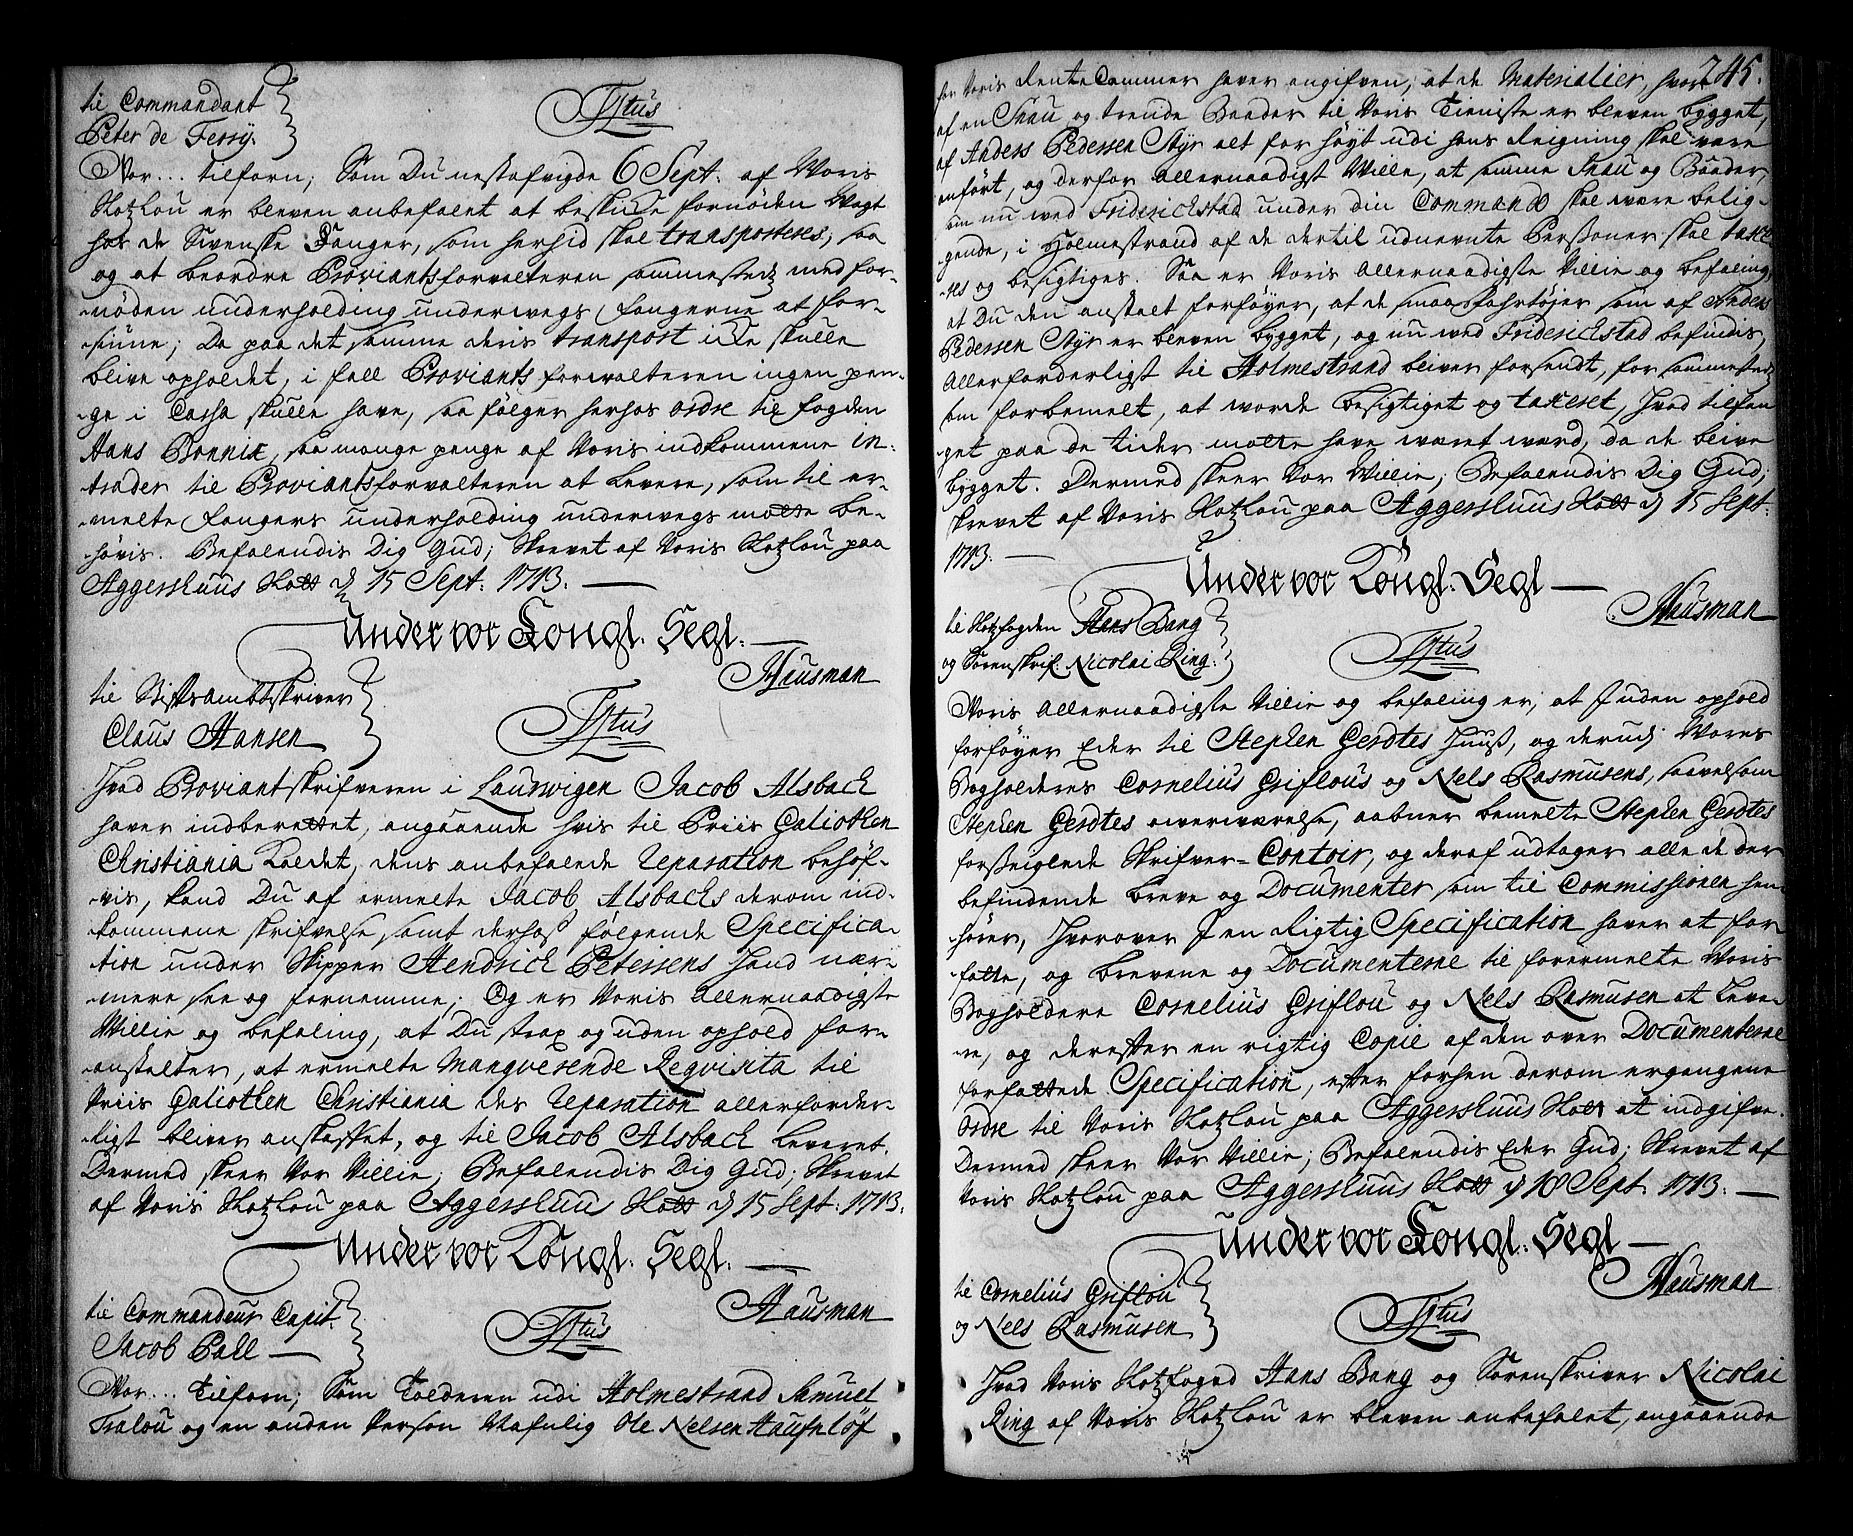 til Commandant
Peter de Fersy.
Ttus
Vor... tilforn; Som Du nestafvigde 6 Sept. af Voris
Slotzlou er bleven anbefalet at beskicke fornöden Vagt
hos de Svenske Fanger, som herhid skal transporteres; saa
og at beordre Proviantsforvalteren sammestedz med for-
nöden underholding underwegs Fangerne at for-
siüne; Da paa det samme deris transport icke skulle
blive opholdet, i fall Proviants forvalteren ingen pen-
ge i Cassa skulle have, saa følger herhos ordre til fogden
Hans Bonnix, saa mange penge af Voris indkommene in-
trader til Proviantsforvalteren at levere, som til er-
melte Fangers underholding underwegs motte be-
høvis. Befalendis Dig Gud; Skrevet af Voris Slotzlou paa
Aggershuus Slott d 15 Sept: 1713.
Under vor Kongl. Segl.
Hausman
til Stiftsambtskriver
Claus Hansen
Ttus
Hvad Proviantskrifveren i Laurwigen Jacob Alsbach
haver indberettet, angaaende hvis til Priis Galiothen
Christiania kaldet, dens anbefalede Reparation behöf-
vis, kand Du af ermelte Jacob Alsbachs derom ind-
kommene skrifvelse, samt derhos følgende Specifica-
tion under Skipper Hendrich Petersens Haand nær-
mere see og fornemme; Og er Voris Allernaadigste
Villie og befaling, at Du strax og uden ophold for-
anstalter, at ermelte manqverende Reqvisita til
Priis Galiothen Christiania des Reparation allerforder-
ligt bliver anskaffet, og til Jacob Alsbach leveret.
Dermed skeer Vor Villie; Befalendis Dig Gud; Skrevet
af Voris Slotzlou paa Aggershuus Slott d 15 Sept: 1713.
Under vor Kongl. Segl.
Hausman
til Commandeur Capit.
Jacob Pall
Ttus
Vor... Tilforn; Som Tolderen udi Holmestrand Samuel
Tralou og en anden Person Nafnlig Ole Nelsen
245.
for Voris Rente Cammer haver angifven, at de Materialier, hvor-
af en Snau og trende Baader til Voris Tieniste er bleven bygget,
af Anders Pedersen Styr alt for høyt udi hans Reigning skal være
anfört, og derfor Allernaadigst Ville, at samme Snau og Baader,
som nu ved Friderichstad under din Commando skal være belig-
gende, i Holmestrand af de dertil udnevnte Persohner skal taxe-
res og besigtiges. Saa er Voris Allernaadigste Villie og befaling,
at Du den anstalt forføyer, at de smaafahrtøjer som af Anders
Pedersen Styr er bleven bygget, og nu ved Friderichstad befindis,
Allerforderligst til Holmestrand bliver forsendt, for sammestedz
som forbemelt, at worde besigtiget og taxeret, hvad tilfen
get paa de tider motte have waret ward, da de bleve
bygget. Dermed skeer Vor Villie; Befalendis Dig Gud;
Skrevet af Voris Slotzlou paa Aggershuus Slott d 15 Sept.
1713.
Under vor Kongl. Segl
Hausman
til Slotzfogden Hans Bang
og Sorenskrif. Nicolai Ring.
Ttus
Voris Allernaadigste Villie og befaling er, at I uden ophold
forføyer Eder til Stephen Gerdtes Huus, og derudi Vores
Bogholderes Cornelius Griflous og Nels Rasmusens, saavelsom
Stephen Gerdtes overværelse, aabner bemelte Stephen Gerdtes
forseiglede Skrifver-Contoir, og deraf udtager alle de der
befindende breve og Documenter som til Commissionen hen-
hører, Hvorover I en Rigtig Specification haver at for-
fatte, og brevene og Documenterne til forermelte Voris
Bogholdere Cornelius Griflou og Nels Rasmusen at leve-
re, og derefter en rigtig Copie af den over Documenterne
forfattede Specification, efter forhen derom ergangene
Ordre til Voris Slotzlou paa Aggershuus Slott at indgifve.
Dermed skeer Vor Villie; Befalendis Eder Gud; Skrevet af
Voris Slotzlou paa Aggershuus Slott d 18 Sept. 1713.
Under vor Kongl. Segl
Hausman
til Cornelius Griflou
og Nels Rasmusen
Ttus
Hvad Voris Slotzfoged Hans Bang og Sorenskriver Nicolai
Ring af Voris Slotzlou er bleven anbefalet, angaaende